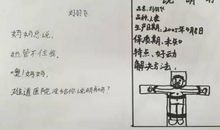 刘羽飞
奶奶总说,
她管不住我。
嘿!奶奶,
难道医院没给你说明书吗?
说明书
品名:刘羽飞
品种:人类
生产日期:2005年9月8日
保质期:未知
特点:好动
解决方法: